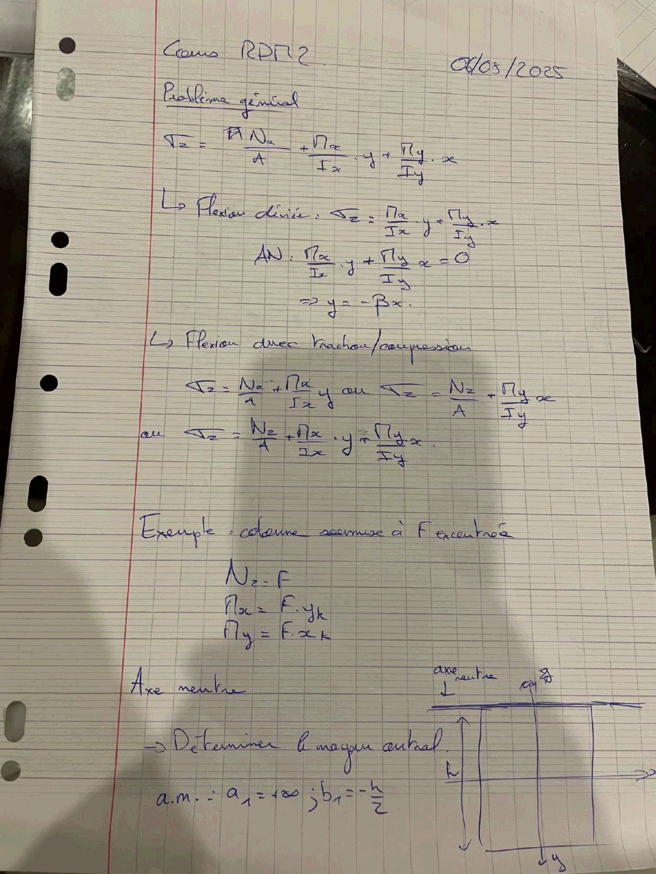 Cours RDM2 06/03/2025
Problème général
σz = Nz/A + Mx/Ix . y + My/Iy . x
↳ Flexion déviée : σz = Mx/Ix . y + My/Iy . x
AN : Mx/Ix . y + My/Iy x = 0
=> y = -βx.
↳ Flexion avec traction/compression
σz = Nz/A + Mx/Ix y ou σz = Nz/A + My/Iy x
ou σz = Nz/A + Mx/Ix . y + My/Iy x.
Exemple : colonne soumise à F excentrée
Nz = F
Mx = F.yk
My = F.xk
Axe neutre
axe neutre
→ Déterminer le noyau central.
h
a.m. : a1 = +∞ ; b1 = -h/2
y